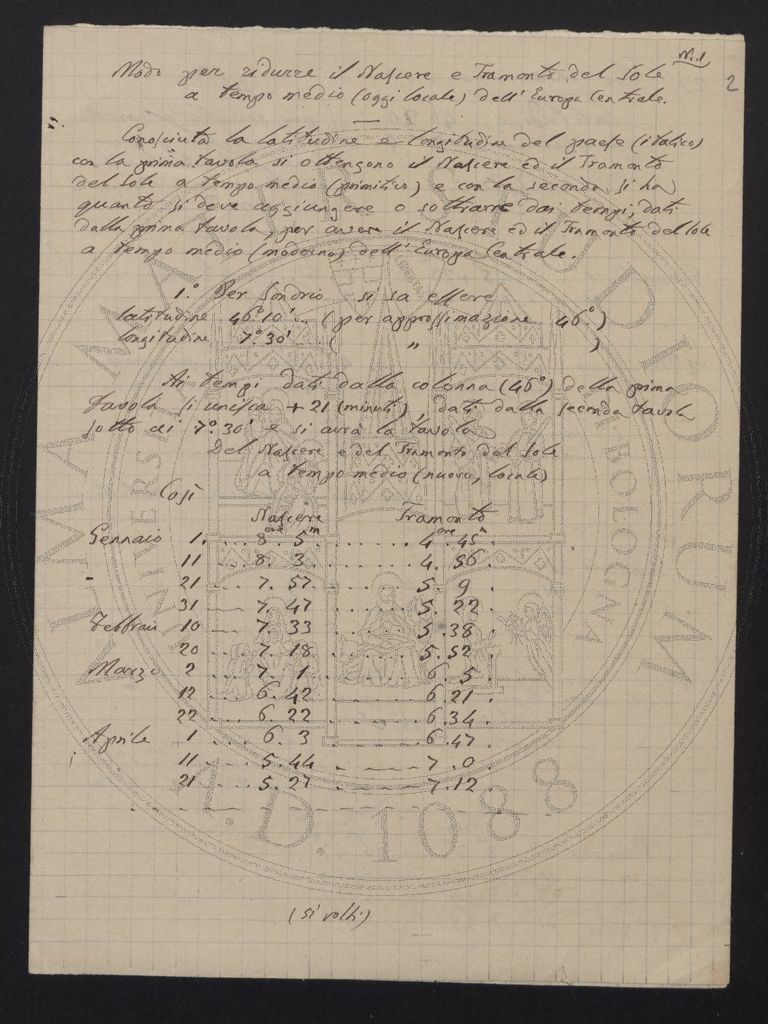 N. 1
2
Modo per ridurre il Nascere e Tramonto del Sole
a tempo medio (oggi locale) dell'Europa Centrale.
Conosciuta la latitudine e longitudine del paese (italico)
con la prima tavola si ottengono il Nascere ed il Tramonto
del Sole a tempo medio (primitivo) e con la seconda si ha
quanto si deve aggiungere o sottrarre dai tempi, dati
dalla prima tavola, per avere il Nascere ed il Tramonto del Sole
a tempo medio (moderno) dell'Europa Centrale.
1.° Per Sondrio si sa essere
latitudine 46°10' .. (per approssimazione 46°.)
longitudine 7°.30' .. ( " )
Ai tempi dati dalla colonna (46°) della prima
tavola si unisca + 21 (minuti), dati dalla seconda tavola
sotto ai 7°.30' e si avrà la tavola
Del Nascere e del Tramonto del Sole
a tempo medio (nuovo, locale)
Così
Nascere Tramonto
Gennaio 1. ... 8 ore 5 m ........ 4 ore 45 m
11 .... 8. 3 ........ 4. 56 .
21 .... 7. 57 ........ 5. 9 .
31 .... 7. 47 ........ 5. 22 .
Febbraio 10 .... 7. 33 ........ 5. 38 .
20 .... 7. 18 ........ 5. 52 .
Marzo 2 .... 7. 1 ........ 6. 5 .
12 .... 6. 42 ........ 6. 21 .
22 .... 6. 22 ........ 6. 34 .
Aprile 1 .... 6. 3 ........ 6. 47 .
11 .... 5. 44 ........ 7. 0 .
21 .... 5. 27 ........ 7. 12 .
(si volti)
ALMA MATER STUDIORUM
A.D. 1088
UNIVERSITÀ DI BOLOGNA